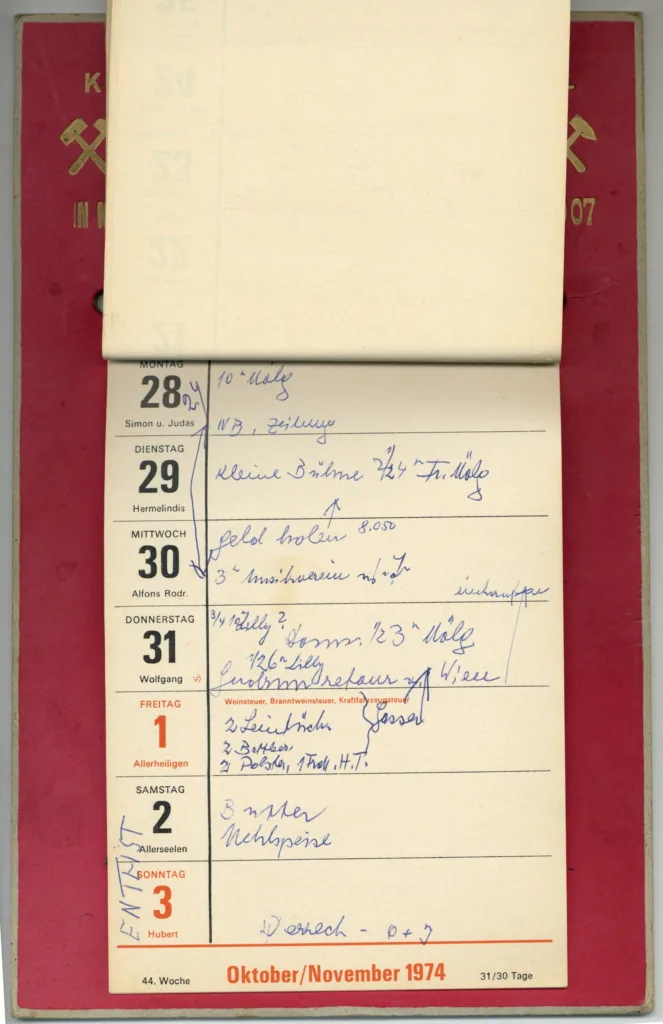 K
L
IN M
07
MONTAG
28
24
Simon u. Judas
10h Mölg
NB, Zeitung
DIENSTAG
29
Hermelindis
kleine Bühne 1/24h Fr. Mölg
MITTWOCH
30
Alfons Rodr.
Geld holen 8.050
3h Musikverein
DONNERSTAG
31
Wolfgang
3/4 10h Lilly?
1/23h Mölg
1/26h Lilly
retour Wien
FREITAG
1
Allerheiligen
Weinsteuer, Branntweinsteuer, Kraftfahrzeugsteuer
2 Leintücher
Gasser
2
2 Polster, 1 H.T.
SAMSTAG
2
Allerseelen
Butter
Mehlspeise
ENTRIST
SONNTAG
3
Hubert
44. Woche
Oktober/November 1974
31/30 Tage